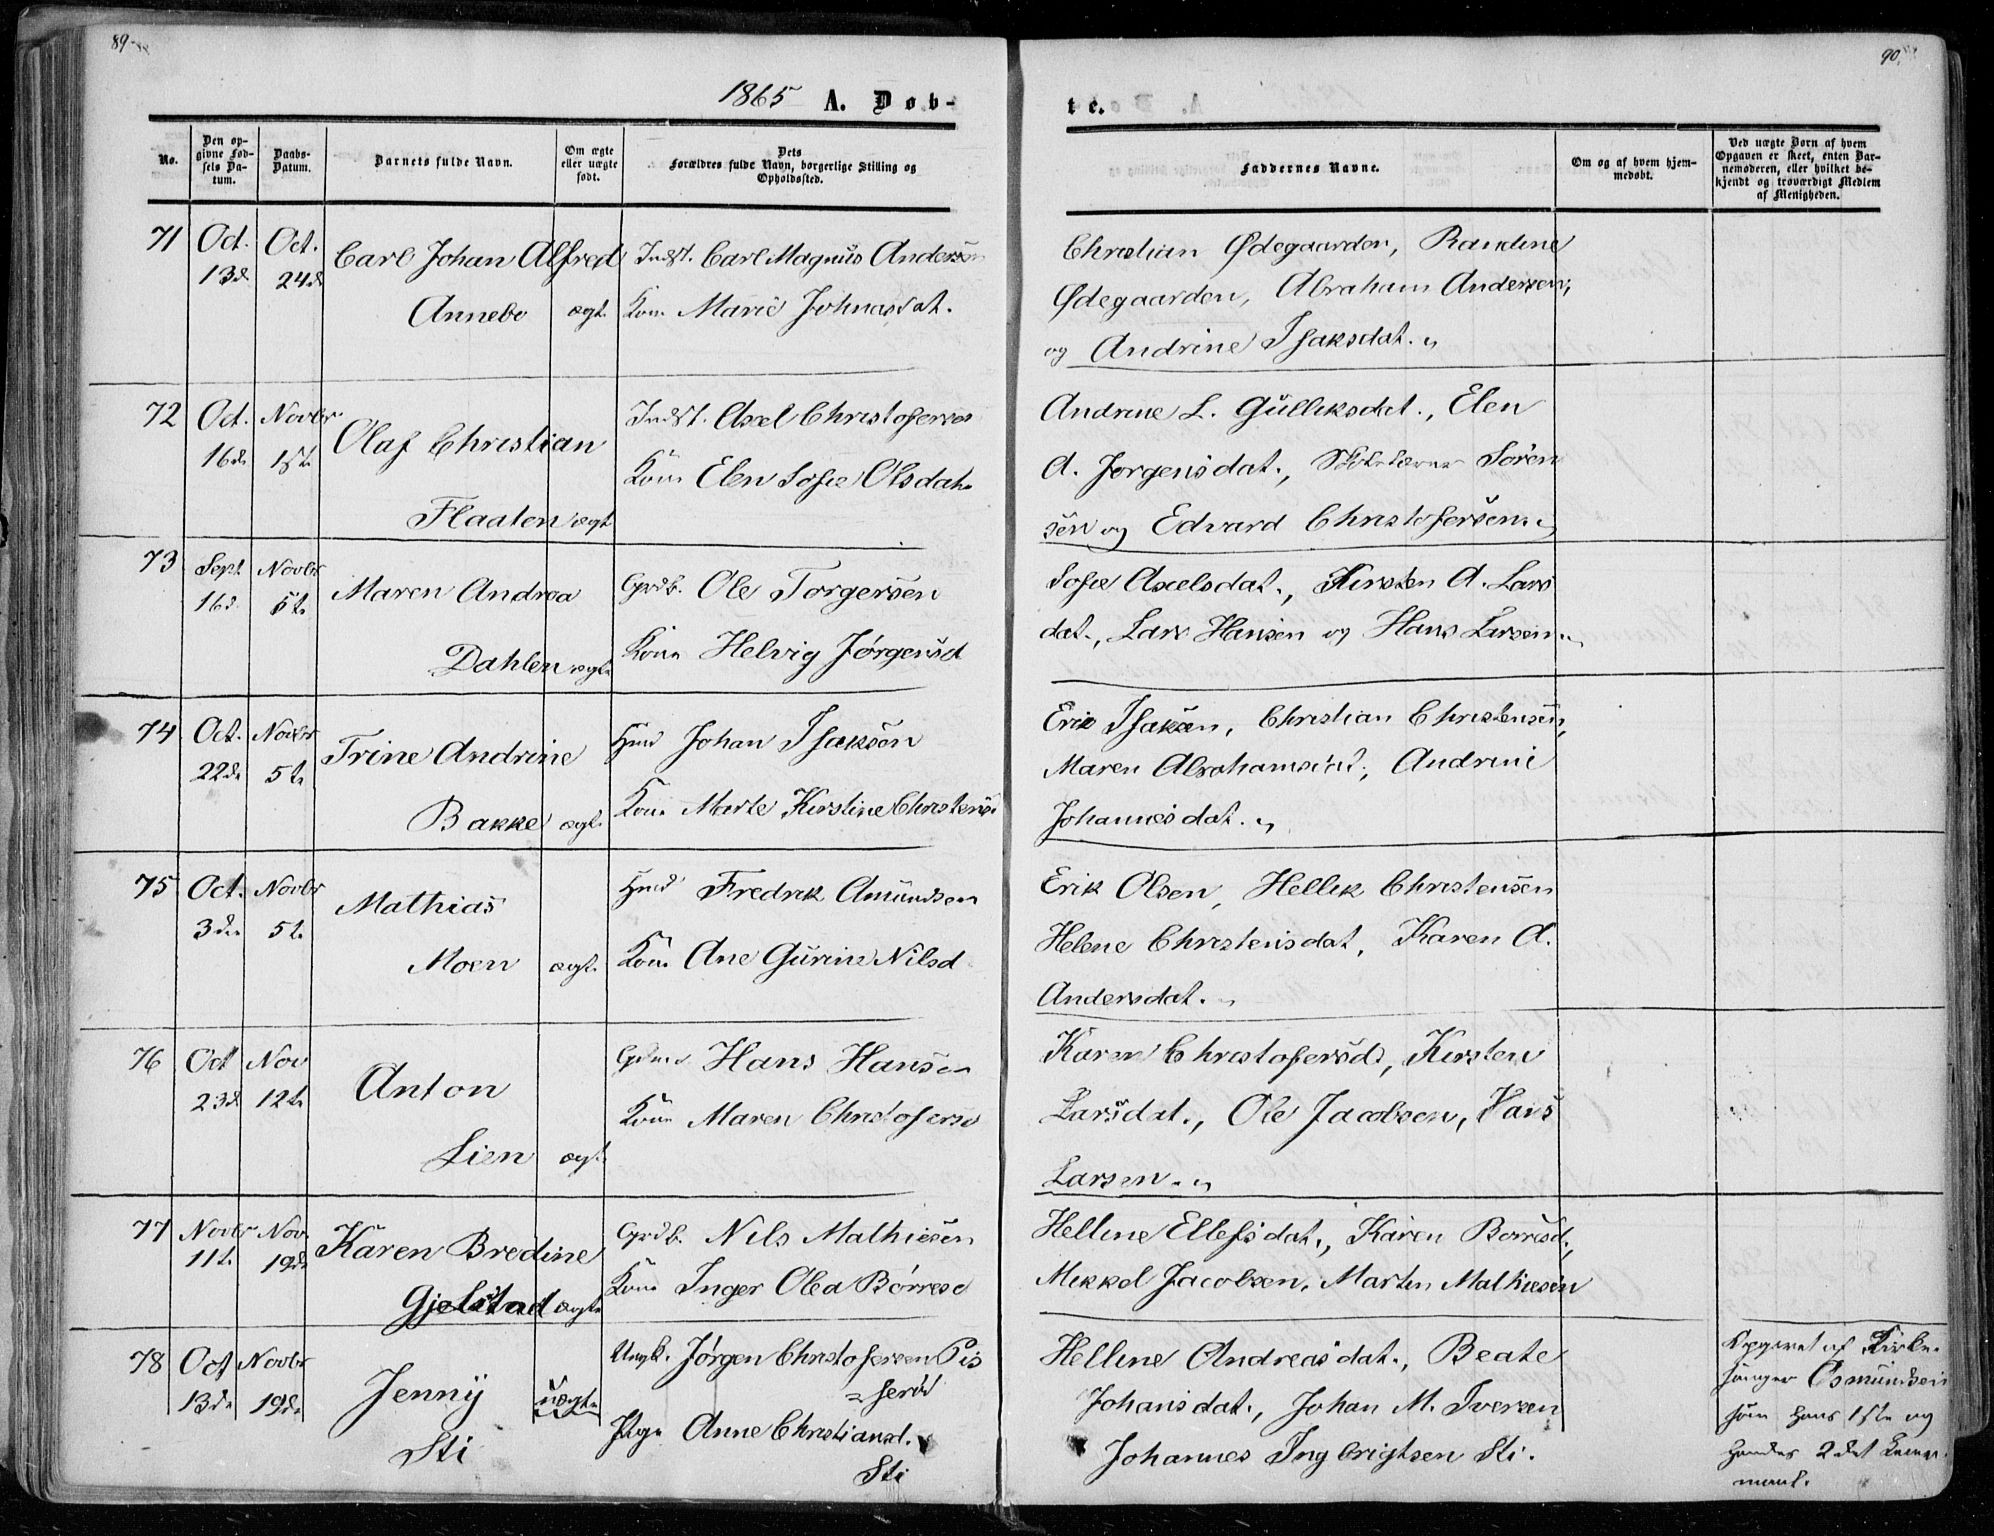 89
1865 A. Døb-
No.
Den op-
givne Fød-
sels Da-
tum.
Daabs-
Datum.
Barnets fulde Navn.
Om ægte
eller uægte
født.
Dets
Forældres fulde Navn, borgerlige Stilling og
Opholdssted.
71 Oct. Oct. Carl Johan Alfred Indst. Carl Magnus Andersen
13d 24d
Annebo ægt. Kone Marie Johnasdat.
72 Oct. Novbr Olaf Christian Indst. Axel Christofersen
16d 1ste Kone Elen Sofie Olsdatr
Flaaten ægt
73 Sept. Novbr Maren Andrea Grdb. Ole Torgersen
16d. 5te
Dahlen ægte Kone Helvig Jørgensd
74 Oct. Novbr Trine Andrine Hmd Johan Isaksen
22de 5te
Bakke ægt. Kone Marte Kirstine Christensd
75 Oct. Novbr Mathias Hmd Fredrik Amundsen
3die 5te
Moen ægt. Kone Ane Gurine Nilsd
76 Oct Nov Anton Hans Hansen
23d 12te
Lien ægt. Kone Maren Christofersd
77 Novbr Nov. Karen Bredine Grdb. Nils Mathiesen
11te 19de
Gjelstad ægte Kone Inger Olea Børresd
78 Oct Novbr Jenny Ungk. Jørgen Christofersen Pis
13de 19de uægte =serød
Sti Pige Anne Christiansd.
Sti
90
te.
Faddernes Navne.
Om og af hvem hjem-
medøbt.
Ved uægte Børn af hvem
Opgaven er skeet, enten Bar-
nemoderen, eller hvilket be-
kjendt og troværdigt Medlem
af Menigheden.
Christian Ødegaarden, Randine
Ødegaarden, Abraham Andersen,
og Andrine Isaksdat. „
Andrine L. Gulliksdat., Elen
A. Jørgensdat., Søren
sen og Edvard Christofersen. „
Sofie Axelsdat., Kirsten A. Lars
dat., Lars Hansen og Hans Larsen. „
Erik Isaksen, Christian Christensen,
Maren Abrahamsdat., Andrine
Johannesdat. „
Erik Olsen, Hellik Christensen
Helene Christensdat, Karen A.
Andersdat. „
Karen Christofersd., Kirsten
Larsdat., Ole Jacobsen, Hans
Larsen. „
Helline Ellefsdat., Karen Borresd.,
Mikkel Jacobsen, Martin Mathiesen
Helline Andreasdat., Beate
Johansdat., Johan M. Iversen
Johannes Ingbrigtsen Sti.
Opgivet af Kirke-
sanger Osmundsen
som hans 1ste og
hendes 2det Leier-
maal.